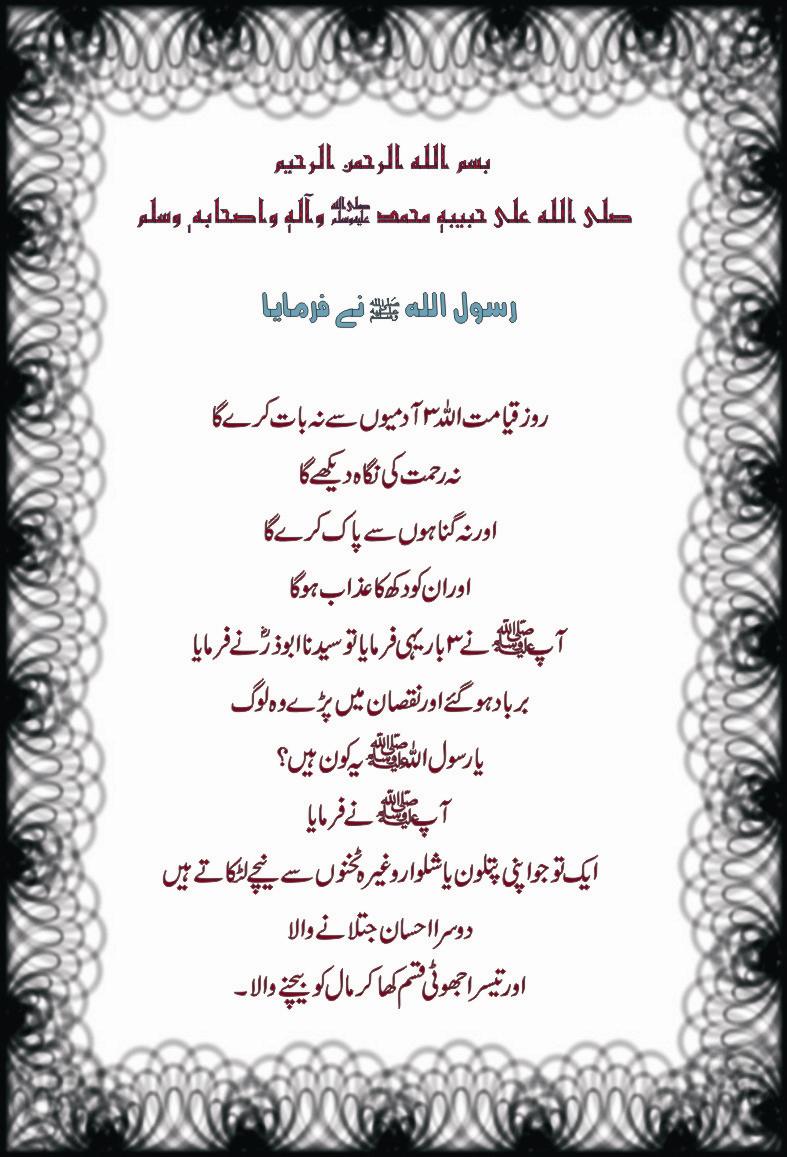 بسم الله الرحمن الرحیم
صلی الله علی حبیبهٖ محمد ﷺ وآلهٖ واصحابهٖ وسلم
رسول الله ﷺ نے فرمایا
روز قیامت اللہ ۳ آدمیوں سے نہ بات کرے گا
نہ رحمت کی نگاہ دیکھے گا
اور نہ گناہوں سے پاک کرے گا
اور ان کو دکھ کا عذاب ہوگا
آپ ﷺ نے ۳ بار یہی فرمایا تو سیدنا ابوذرؓ نے فرمایا
برباد ہوگئے اور نقصان میں پڑے وہ لوگ
یا رسول اللہ ﷺ یہ کون ہیں؟
آپ ﷺ نے فرمایا
ایک تو جو اپنی پتلون یا شلوار وغیرہ ٹخنوں سے نیچے لٹکاتے ہیں
دوسرا احسان جتلانے والا
اور تیسرا جھوٹی قسم کھا کر مال کو بیچنے والا۔